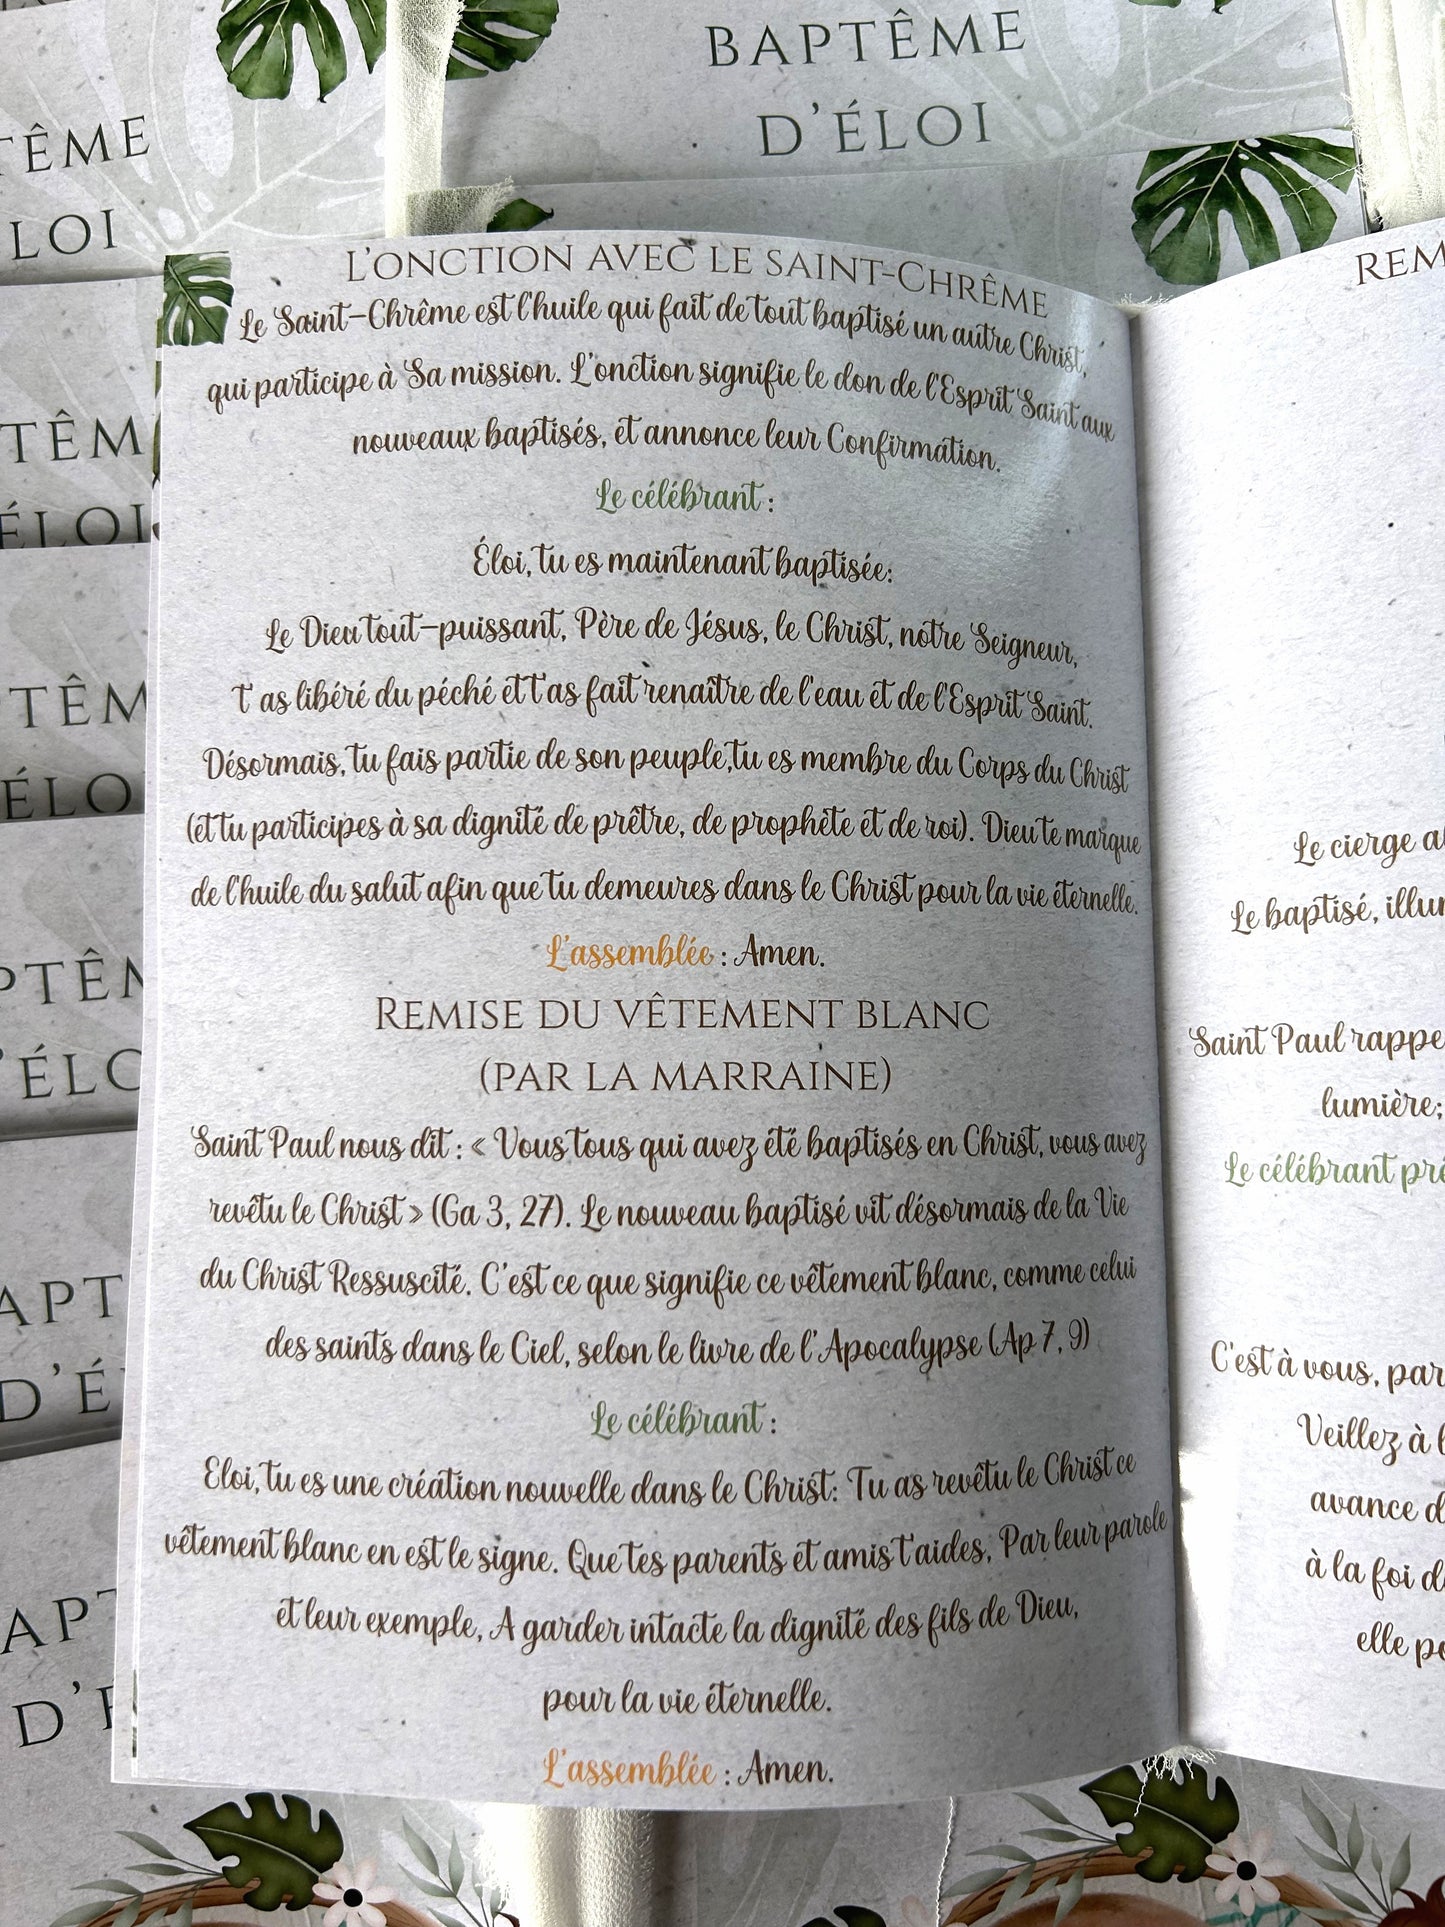 BAPTÊME
D'ÉLOI
L'ONCTION AVEC LE SAINT-CHRÊME
Le Saint-Chrême est l'huile qui fait de tout baptisé un autre Christ,
qui participe à Sa mission. L'onction signifie le don de l'Esprit Saint aux
nouveaux baptisés, et annonce leur Confirmation.
Le célébrant :
Éloi, tu es maintenant baptisée:
Le Dieu tout-puissant, Père de Jésus, le Christ, notre Seigneur,
t' as libéré du péché et t'as fait renaître de l'eau et de l'Esprit Saint.
Désormais, tu fais partie de son peuple,tu es membre du Corps du Christ
(et tu participes à sa dignité de prêtre, de prophète et de roi). Dieu te marque
de l'huile du salut afin que tu demeures dans le Christ pour la vie éternelle.
L'assemblée : Amen.
REMISE DU VÊTEMENT BLANC
(PAR LA MARRAINE)
Saint Paul nous dit : « Vous tous qui avez été baptisés en Christ, vous avez
revêtu le Christ » (Ga 3, 27). Le nouveau baptisé vit désormais de la Vie
du Christ Ressuscité. C'est ce que signifie ce vêtement blanc, comme celui
des saints dans le Ciel, selon le livre de l'Apocalypse (Ap 7, 9)
Le célébrant :
Eloi, tu es une création nouvelle dans le Christ: Tu as revêtu le Christ ce
vêtement blanc en est le signe. Que tes parents et amis t'aides, Par leur parole
et leur exemple, A garder intacte la dignité des fils de Dieu,
pour la vie éternelle.
L'assemblée : Amen.
Le cierge
Le baptisé,
Saint Paul
lumière;
Le célébrant
C'est à vous,
Veillez à
avance
à la foi
elle